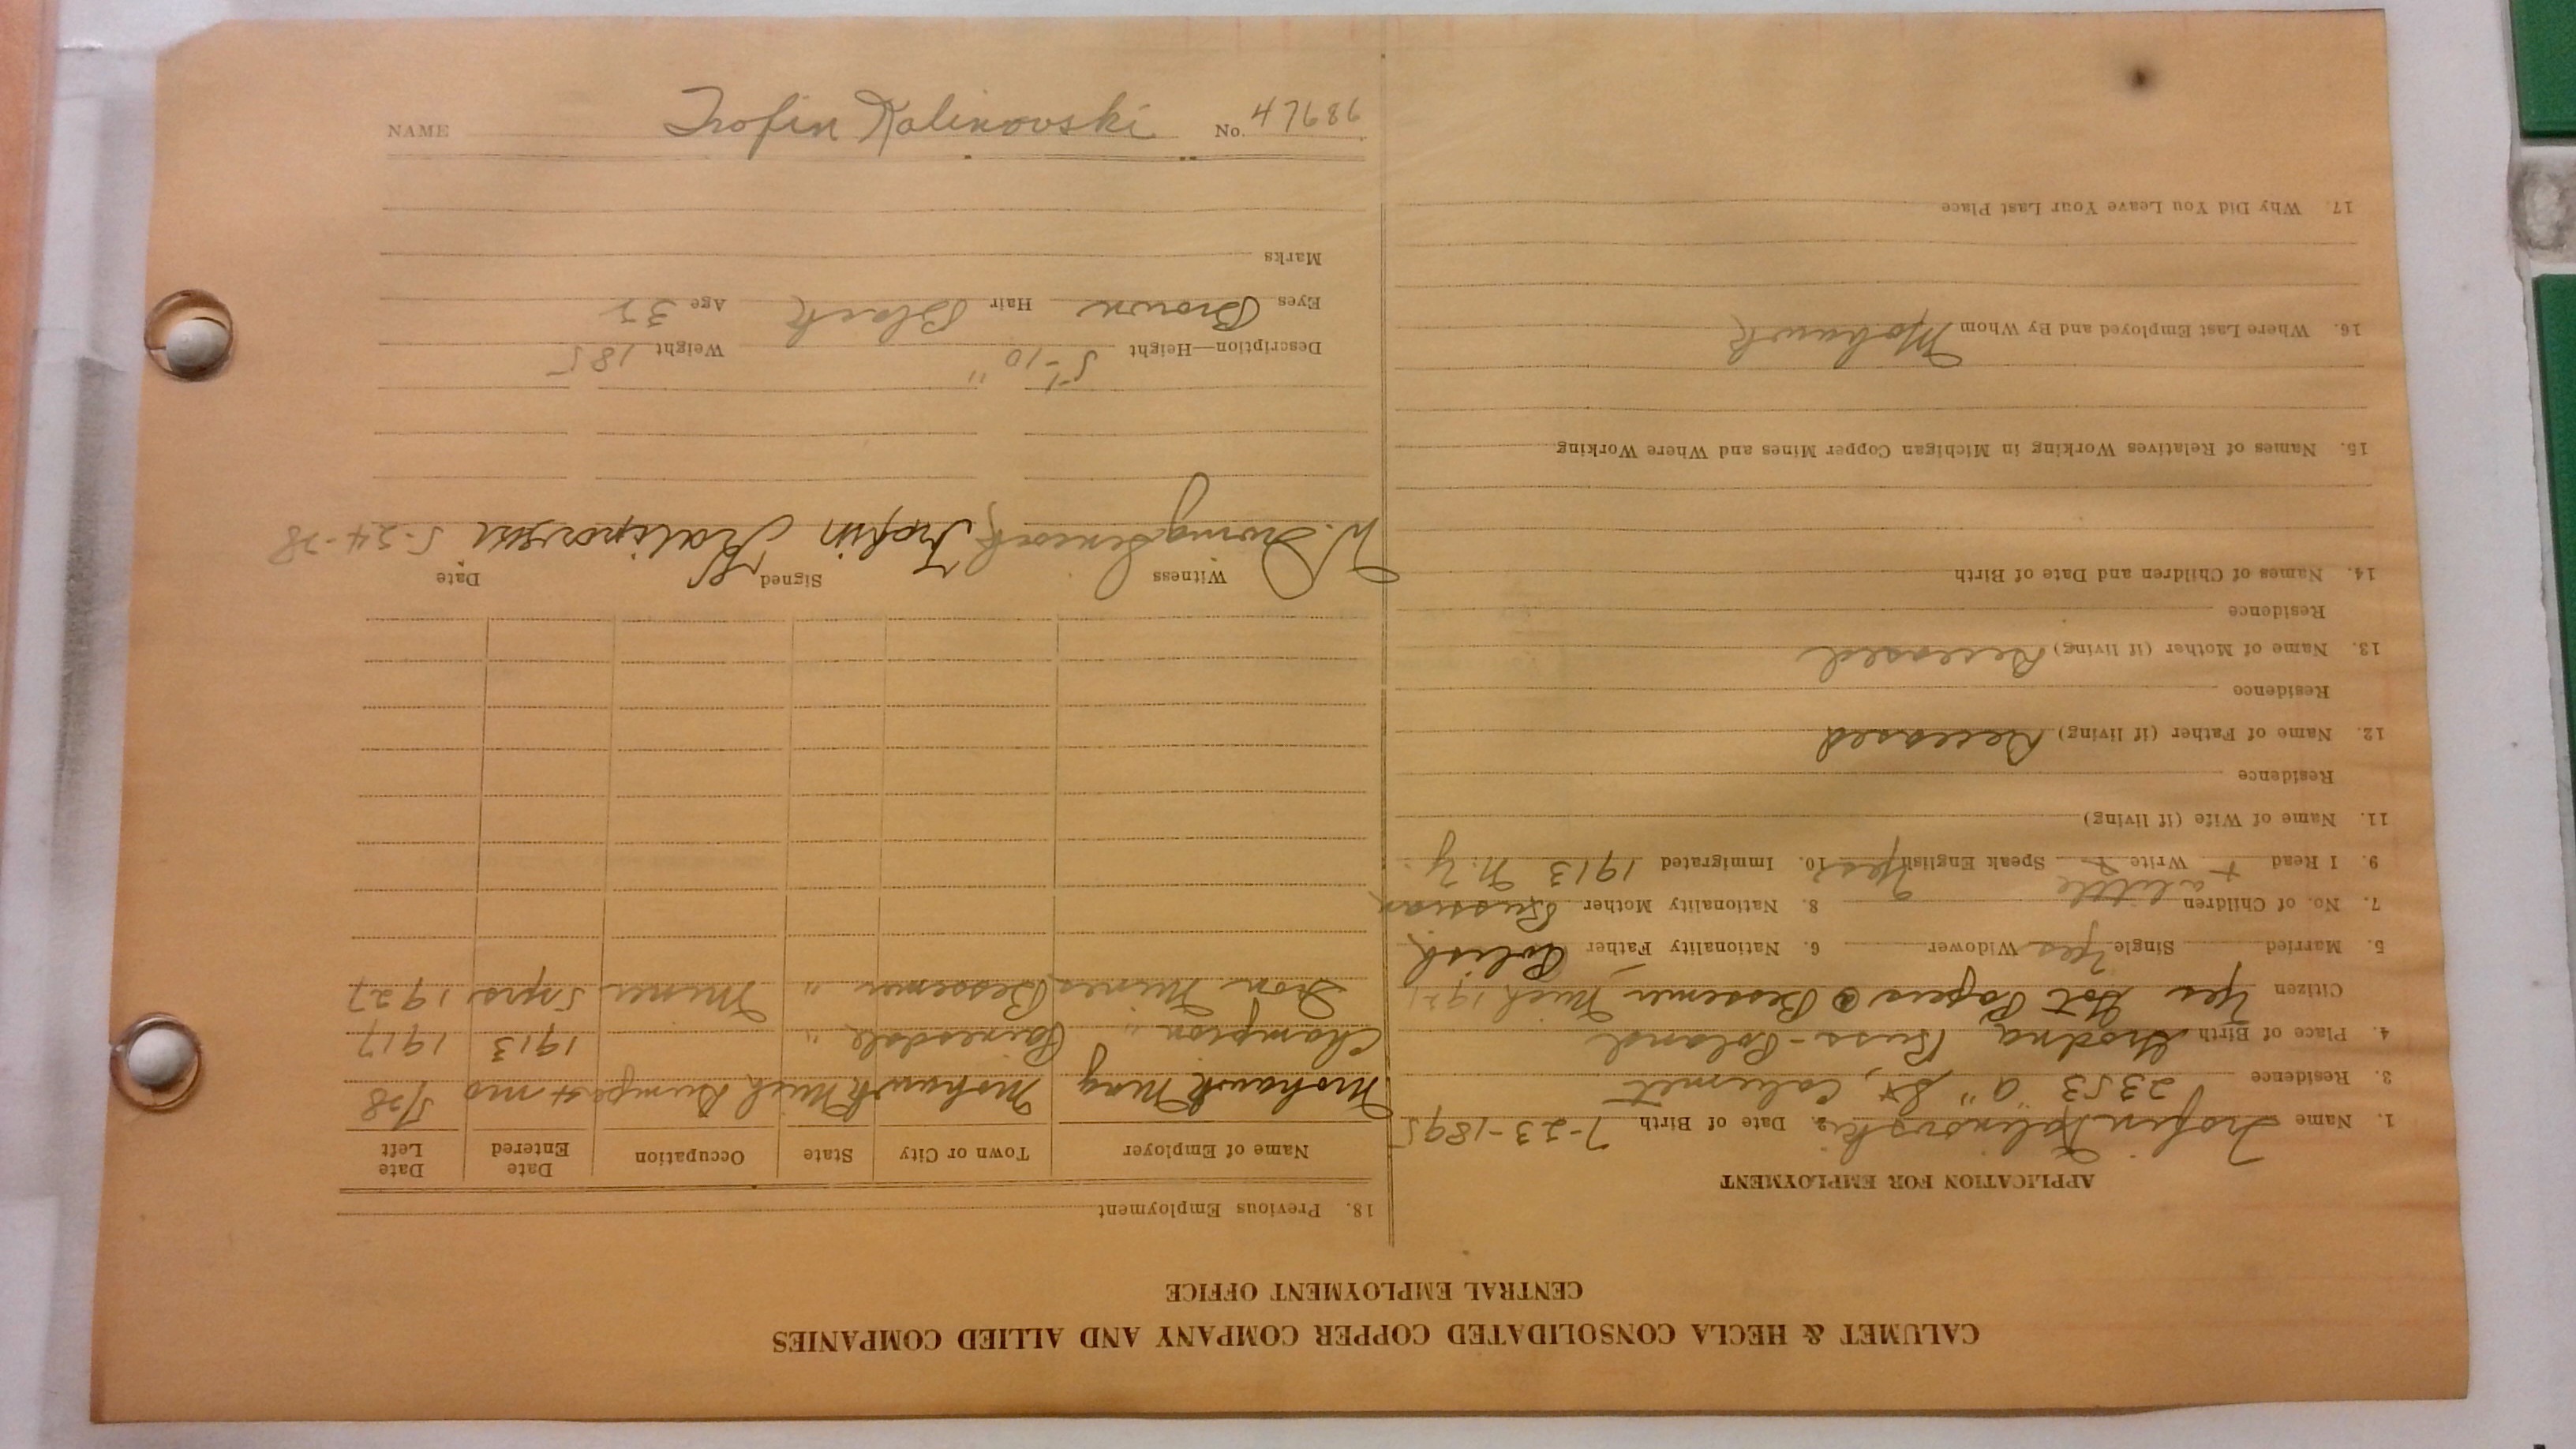 CALUMET & HECLA CONSOLIDATED COPPER COMPANY AND ALLIED COMPANIES
CENTRAL EMPLOYMENT OFFICE
APPLICATION FOR EMPLOYMENT
1. Name Trofin Kalinovski 2. Date of Birth 7-23-1895
3. Residence 2353 "A" St, Calumet
4. Place of Birth Grodna, Russ-Poland
Citizen Yes Got Papers @ Bessemer Mich
5. Married Single Yes Widower 6. Nationality Father Polish
7. No. of Children 8. Nationality Mother Russian
a little
9. I Read + Write + Speak English Yes 10. Immigrated 1913 N.Y.
11. Name of Wife (if living)
Residence
12. Name of Father (if living) Deceased
Residence
13. Name of Mother (if living) Deceased
Residence
14. Names of Children and Date of Birth
15. Names of Relatives Working in Michigan Copper Mines and Where Working
16. Where Last Employed and By Whom Mohawk
17. Why Did You Leave Your Last Place
18. Previous Employment
Name of Employer Town or City State Occupation Date Entered Date Left
Mohawk Mng Mohawk Mich 4 mo 5/28
Champion " Painesdale " 1913 1917
Iron Mines Bessemer " Miner 5 yrs 1927
Witness Signed Date
W. Trofin 5-24-28
Description—Height 5'-10" Weight 185
Eyes Brown Hair Black Age 32
Marks
NAME Trofin Kalinovski No. 47686